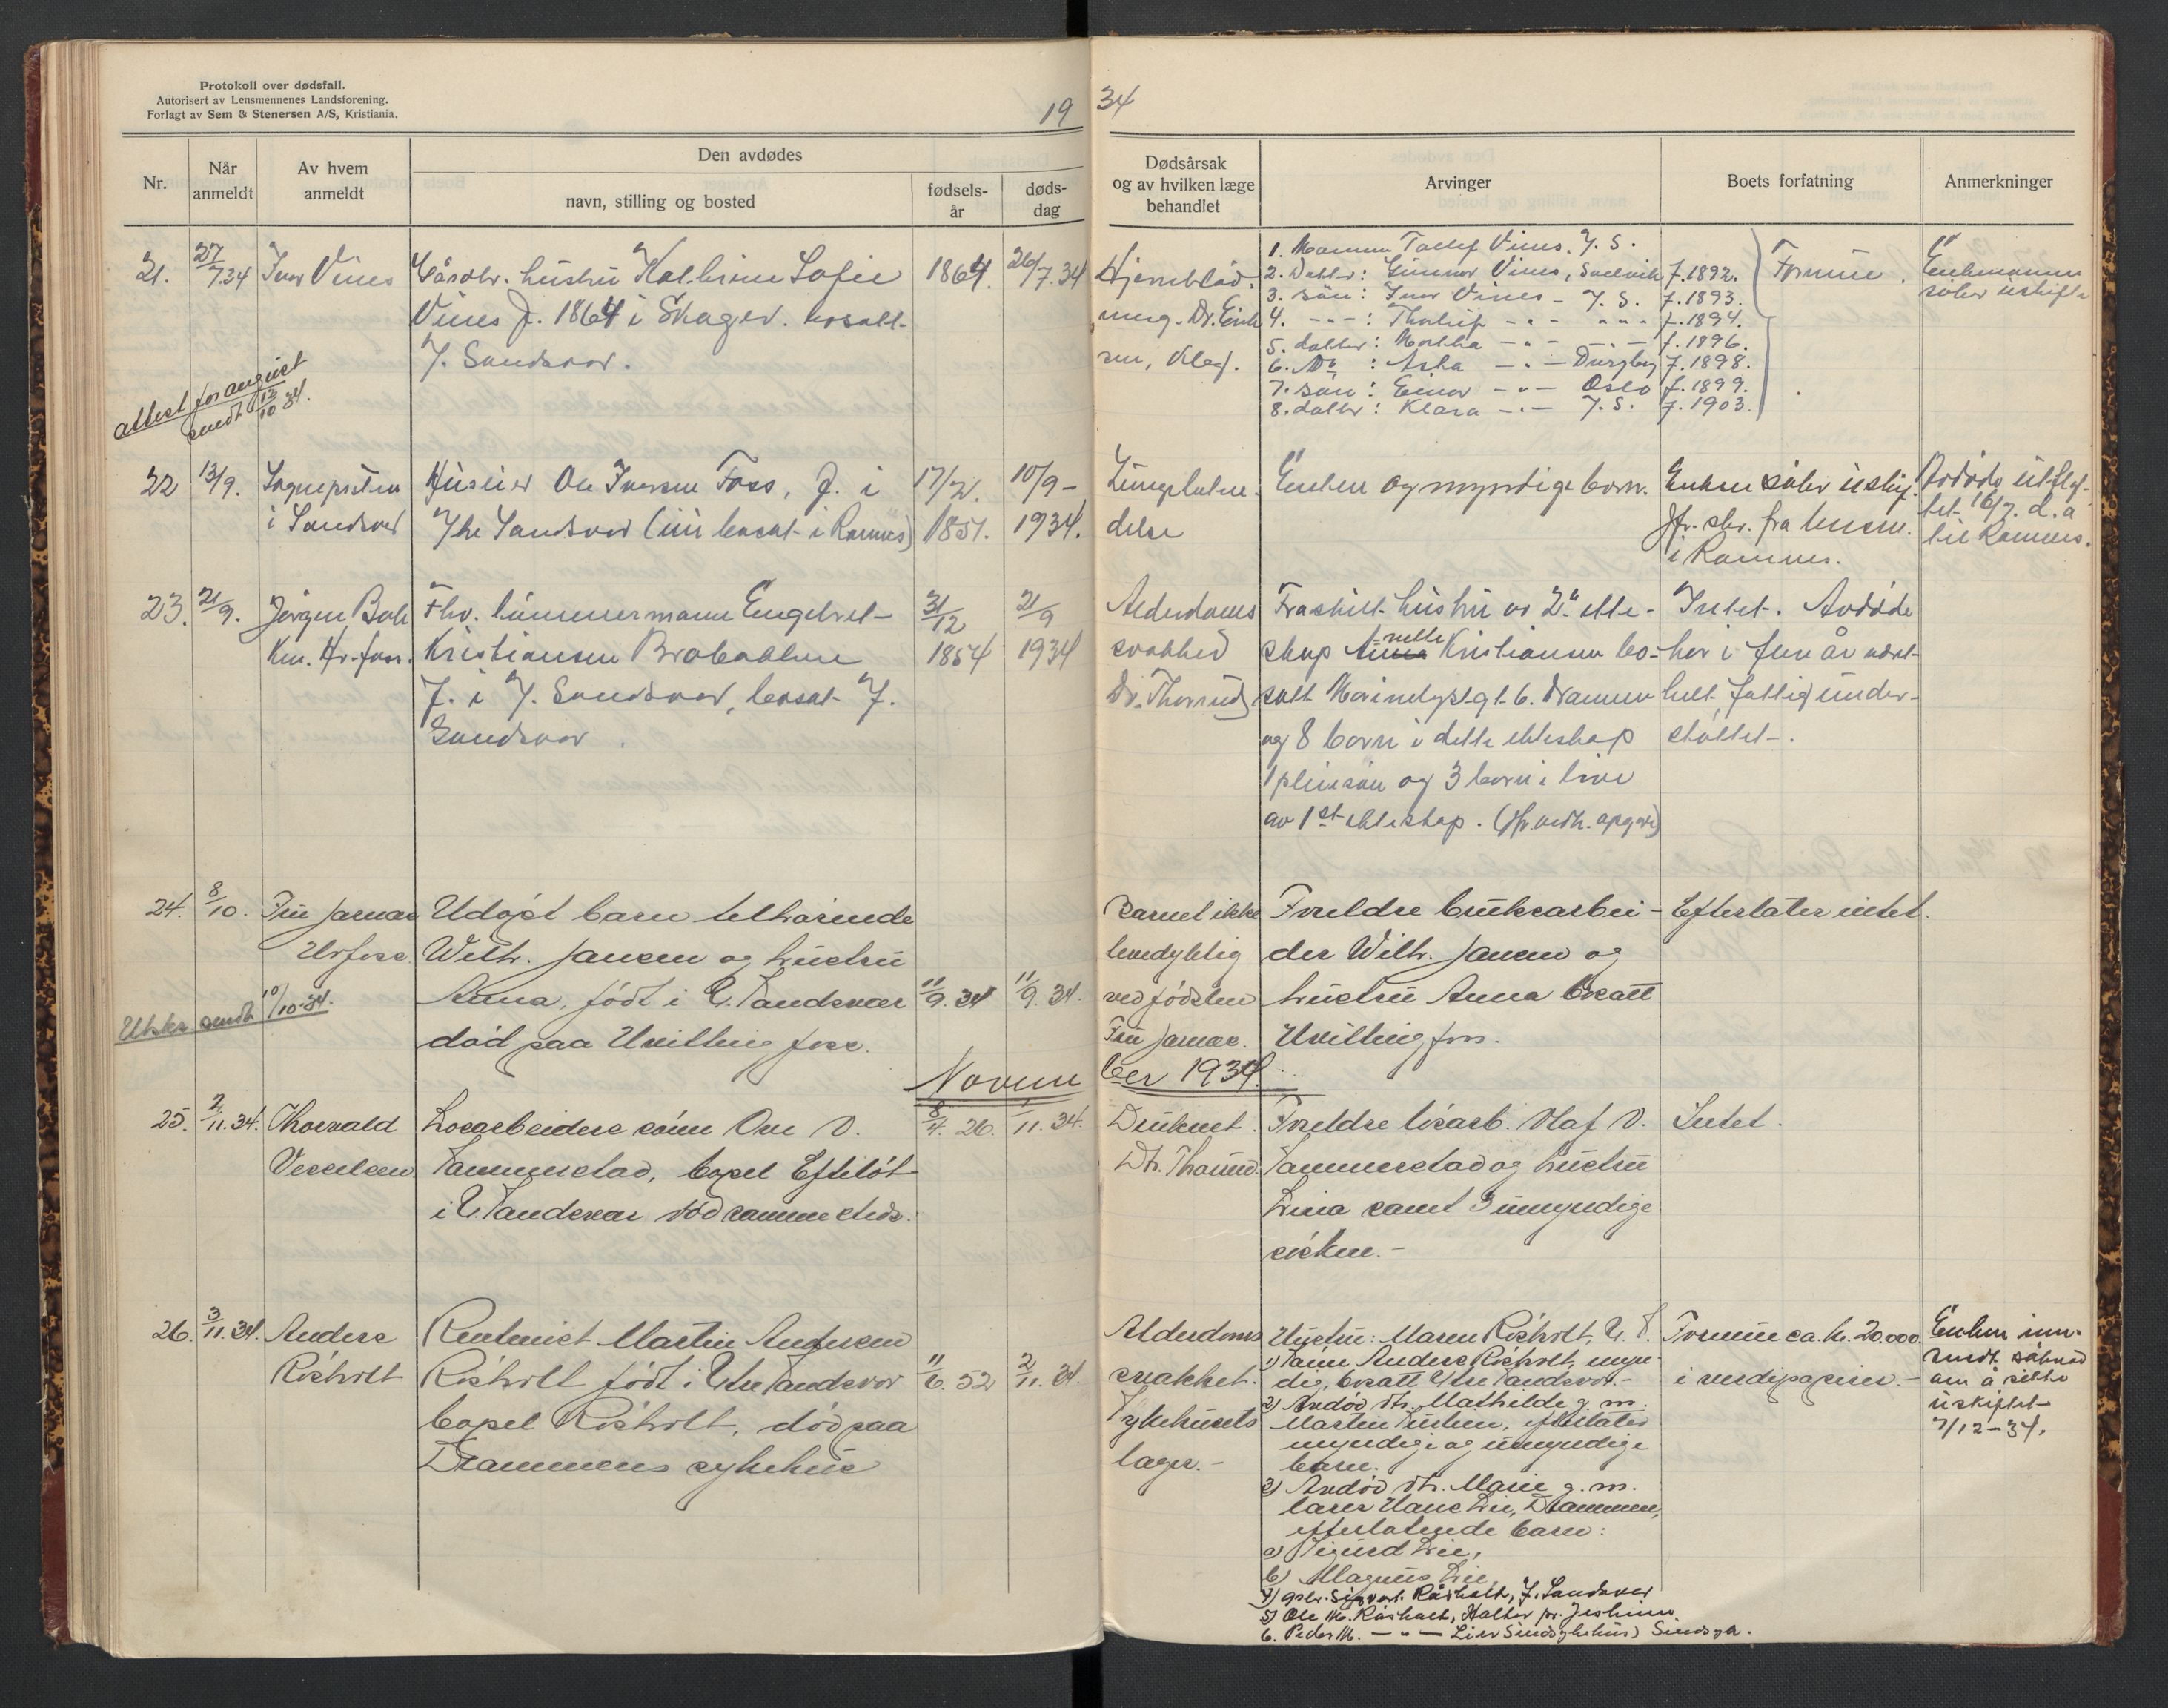 Protokoll over dødsfall.
Autorisert av Lensmennenes Landsforening.
Forlagt av Sem & Stenersen A/S, Kristiania.
19 34
Nr.
Når anmeldt
Av hvem anmeldt
Den avdødes
navn, stilling og bosted
fødsels-år
døds-dag
Dødsårsak
og av hvilken læge
behandlet
Arvinger
Boets forfatning
Anmerkninger
21. 27/7 34 Iver Vines
Gårdbr. hustru Kathrine Sofie
Vines f. 1864 i Skoger. bosatt
Y. Sandsvær.
1864. 26/7.34
Hjerneblød-
ning. Dr.
1. Mannen Tollef Vines. Y. S.
2. Datter: Gunnor Vines, f. 1892.
3. søn: Iver Vines - Y. S. f. 1893.
4. -"-: Thorleif -"- -"- f. 1894.
5. datter: Martha -"- -"- f. 1896.
6. Do : Aska -"- f. 1898.
7. søn: Einar -"- Oslo f. 1899.
8. datter: Klara -"- Y. S. f. 1903.
Formue.
Enkemannen
søker uskifte
attest for august
sendt 12/10 34.
22 13/9. Sognepresten
i Sandsver
Huseier Ole Iversen Foss, f. i
Ytre Sandsver (nu bosat i Ramnes)
17/2.
1851.
10/9 -
1934.
Lungebetæn-
delse
Enken og myndige born.
Enken søker uskif.
Jfr. skr. fra lensm.
i Ramnes.
Avdøde utflyt-
tet 16/7. d. å
til Ramnes.
23. 21/9. Jørgen Bak
ken. Hv.foss.
Fhv. tømmermann Engebret
Kristiansen Brobakken
f. i Y. Sandsver, bosat Y.
Sandsver.
31/12
1854
21/9
1934
Alderdoms
svakhed
Dr. Thorrud
Fraskilt hustru av 2. ekte-
skap Anna nette Kristiansen bo-
satt Marinelystgt. 6. Drammen
og 8 born i dette ekteskap
1 pleiesøn og 3 born i live
av 1st ekteskap. (Jfr. vedh. opgave)
Intet. Avdøde
har i flere år vært
helt fattigunder-
støttet.
24. 8/10. Fru Jarnæs
Hvfoss.
Udøpt barn tilhørende
Wilh. Jansen og hustru
Anna, født i Y. Sandsvær
død paa Hvittingfoss.
11/9. 34
11/9. 34.
Barnet ikke
levedyktig
ved fødselen
Fru Jarnæs.
Foreldre bruksarbei-
der Wilh. Jansen og
hustru Anna bosatt
Hvittingfoss.
Efterlater intet.
Utskr sendt 10/10-34.
November 1934.
25. 2/11. 34. Thorvald
Vesselsen
Løsarbeiders sønn Ove O.
Sammerstad, bopel Efteløt
i Y. Sandsvær død sammesteds.
8/4. 26.
11. 34.
Druknet.
Dr. Thorrud.
Foreldre løsarb. Olaf O.
Sammerstad og hustru
Lina samt 3 umyndige
søsken.-
Intet.
26. 3/11. 34. Anders
Røsholt
Rentenist Martin Andersen
Røsholt født i Ytre Sandsvær
bopel Røsholt, død paa
Drammens sykehus
11/6. 52
2/11. 34.
Alderdoms
svakhet.
Sykehusets
læger.-
Hustru: Maren Røsholt, Y. S.
1) Sønn Anders Røsholt, myn-
dig, bosatt Ytre Sandsvær.-
2) Avdød dtr. Mathilde g. m.
Martin, efterlater
myndige og umyndige
barn.
3) Avdød dtr. Marie g. m.
lærer Hans Lie, Drammen,
efterlatende barn:
a) Sigurd Lie,
b) Magnus Lie,
4) gbr. Sigvart Røsholt, Y. Sandsver
5) Ole M. Røsholt,
6. Peder M. -"- Lier Sindsykehus)
Formue ca. kr. 20.000
i verdipapirer.-
Enken inn-
sendt søknad
om å sitte
uskiftet
7/12-34.